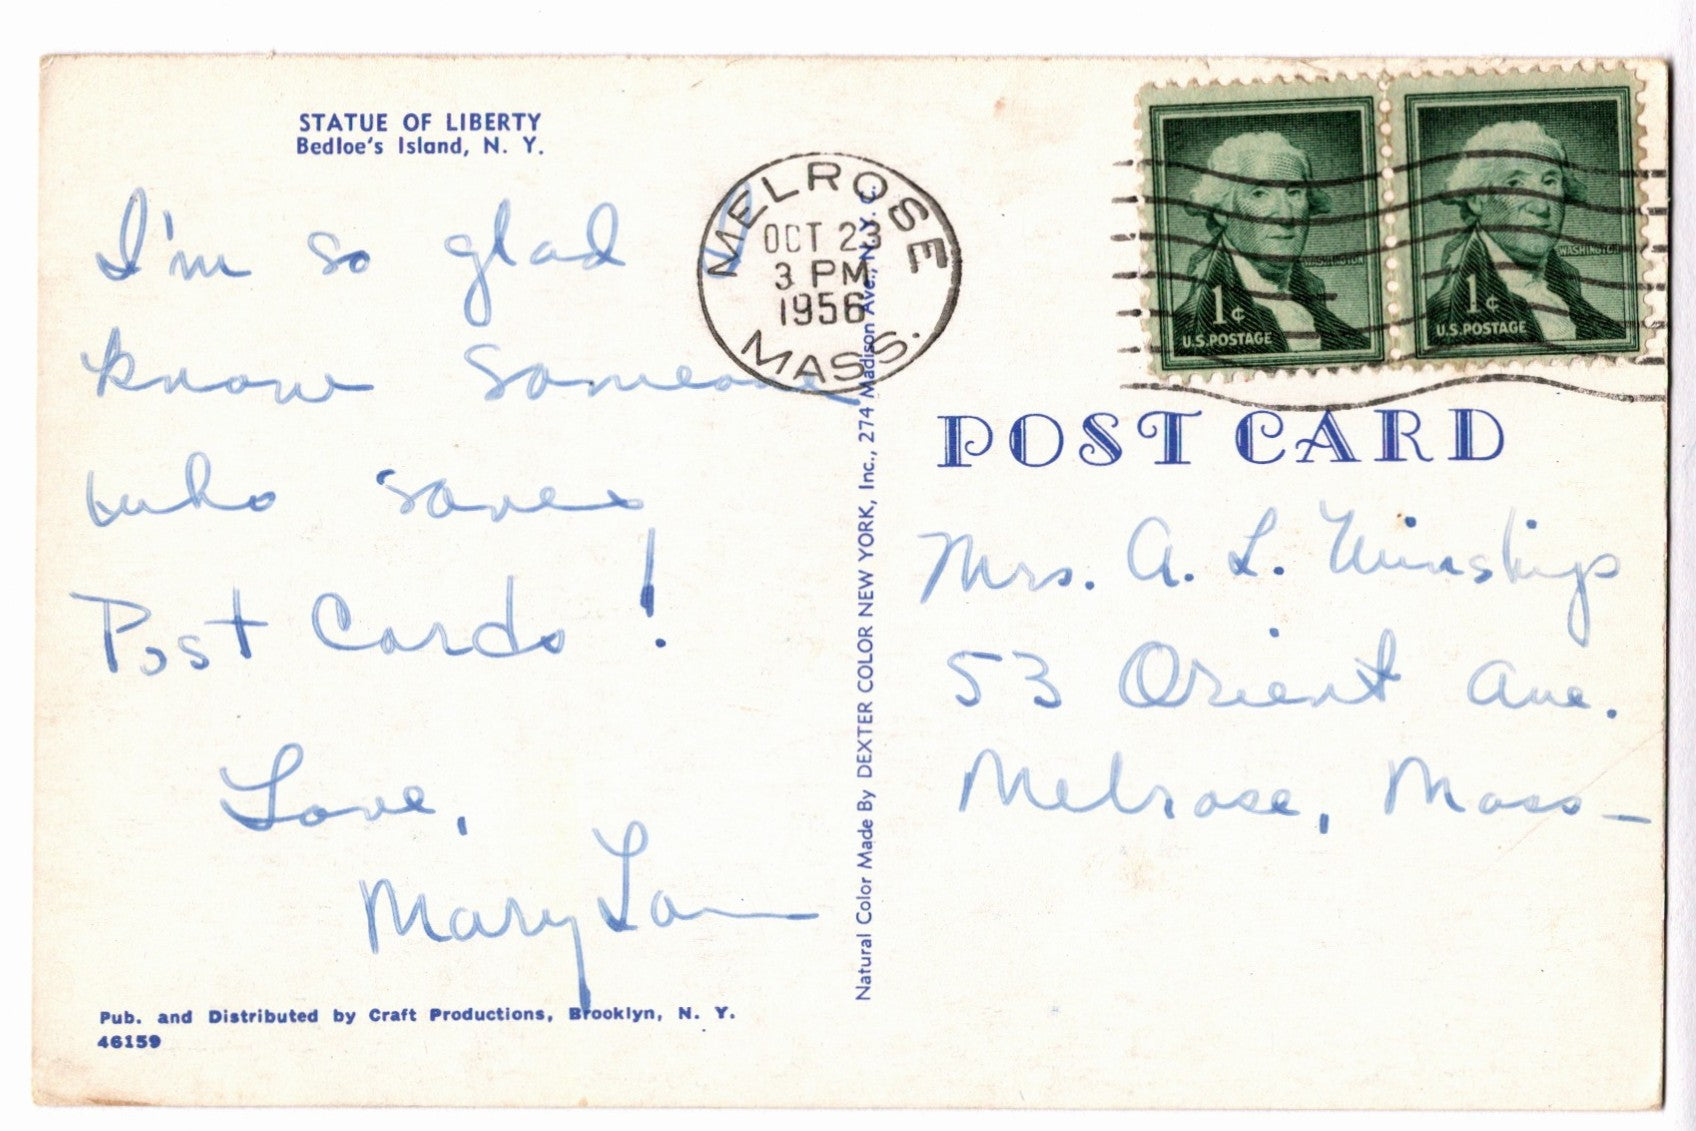 STATUE OF LIBERTY
Bedloe's Island, N. Y.
I'm so glad I
know someone
who saves
Post Cards!
Love,
Mary Lou
Pub. and Distributed by Craft Productions, Brooklyn, N. Y.
46159
Natural Color Made By DEXTER COLOR NEW YORK, Inc., 274 Madison Ave., N.Y. C.
MELROSE
OCT 23
3 PM
1956
MASS.
WASHINGTON
1¢
U.S.POSTAGE
WASHINGTON
1¢
U.S.POSTAGE
POST CARD
Mrs. A. L.
53 Orient Ave.
Melrose, Mass-